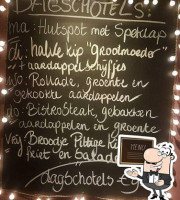 DAGSCHOTELS:
ma: Hutspot met Speklap
di: halve kip "grootmoeder"
+ aardappelschijfjes
wo: Rollade, groente en
gekookte aardappelen
do: BistroSteak, gebakken
aardappelen en groente
vrij: Broodje Pittige
friet en Salade
dagSchotels
MENU